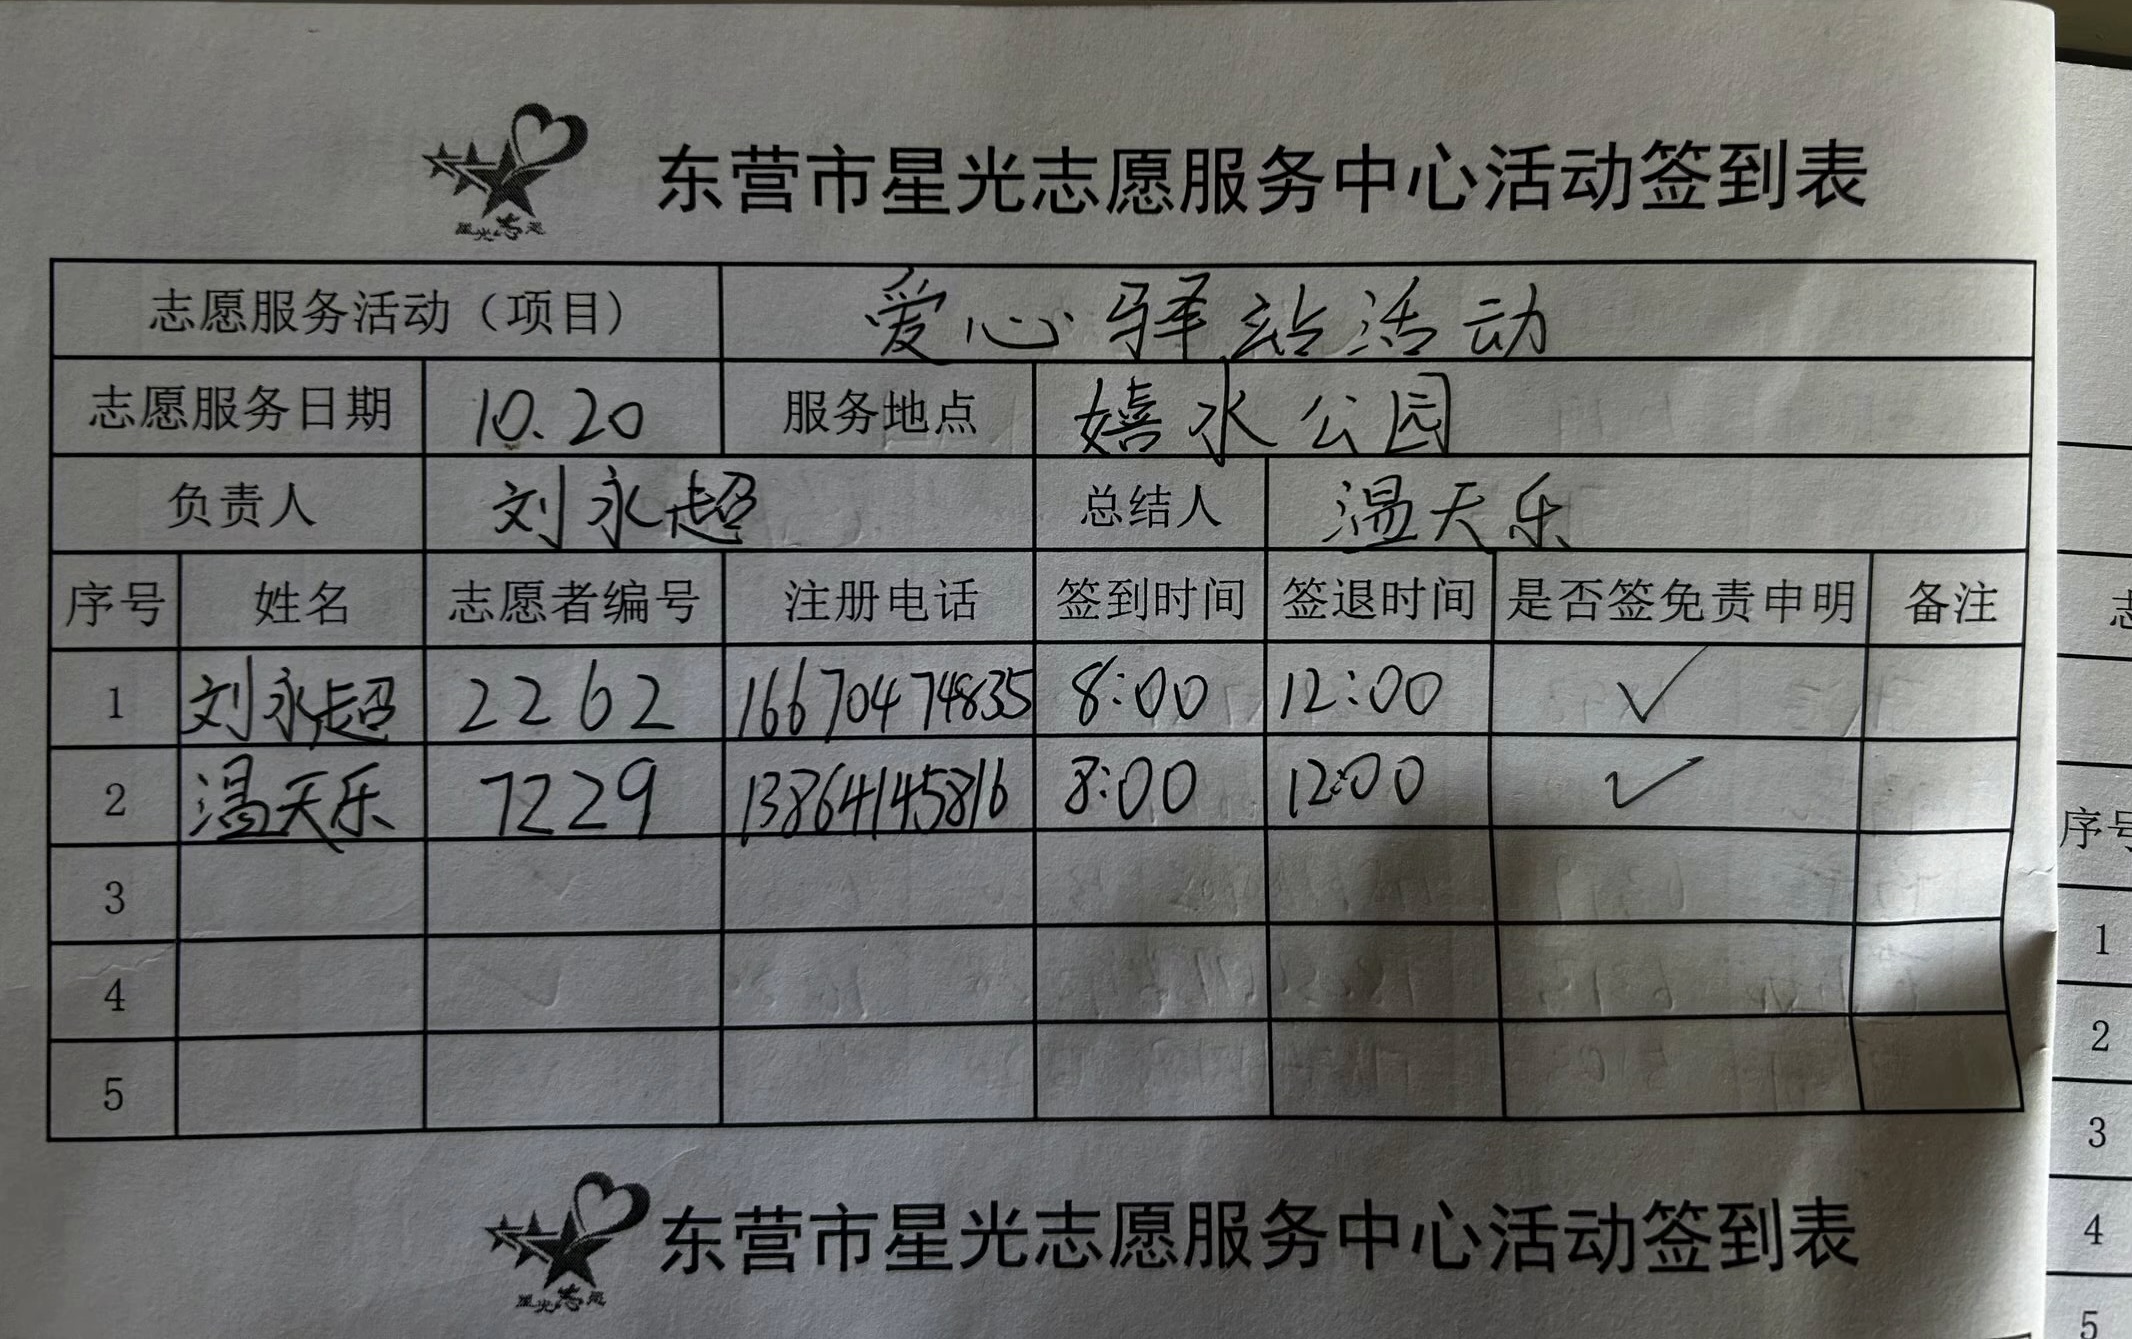 星光志愿
东营市星光志愿服务中心活动签到表
志愿服务活动（项目） 爱心驿站活动
志愿服务日期 10.20 服务地点 嬉水公园
负责人 刘永超 总结人 温天乐
序号 姓名 志愿者编号 注册电话 签到时间 签退时间 是否签免责申明 备注
1 刘永超 2262 16670474835 8:00 12:00 ✓
2 温天乐 7229 13864145816 8:00 12:00 ✓
3
4
5
星光志愿
东营市星光志愿服务中心活动签到表
序号
1
2
3
4
5